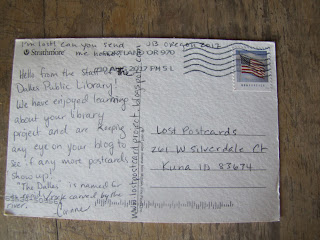 I'm lost! Can you send me home
Strathmore
PORTLAND OR 970
2017 PM 5 L
Hello from the staff at the
Dalles Public Library!
We have enjoyed learning
about your library
project and are keeping
any eye on your blog to
see if any more postcards
show up!
"The Dalles" is named for
carved by the
river.
www.lostpostcardproject.blogspot.com
Lost Postcards
261 W Silverdale Ct
Kuna ID 83674